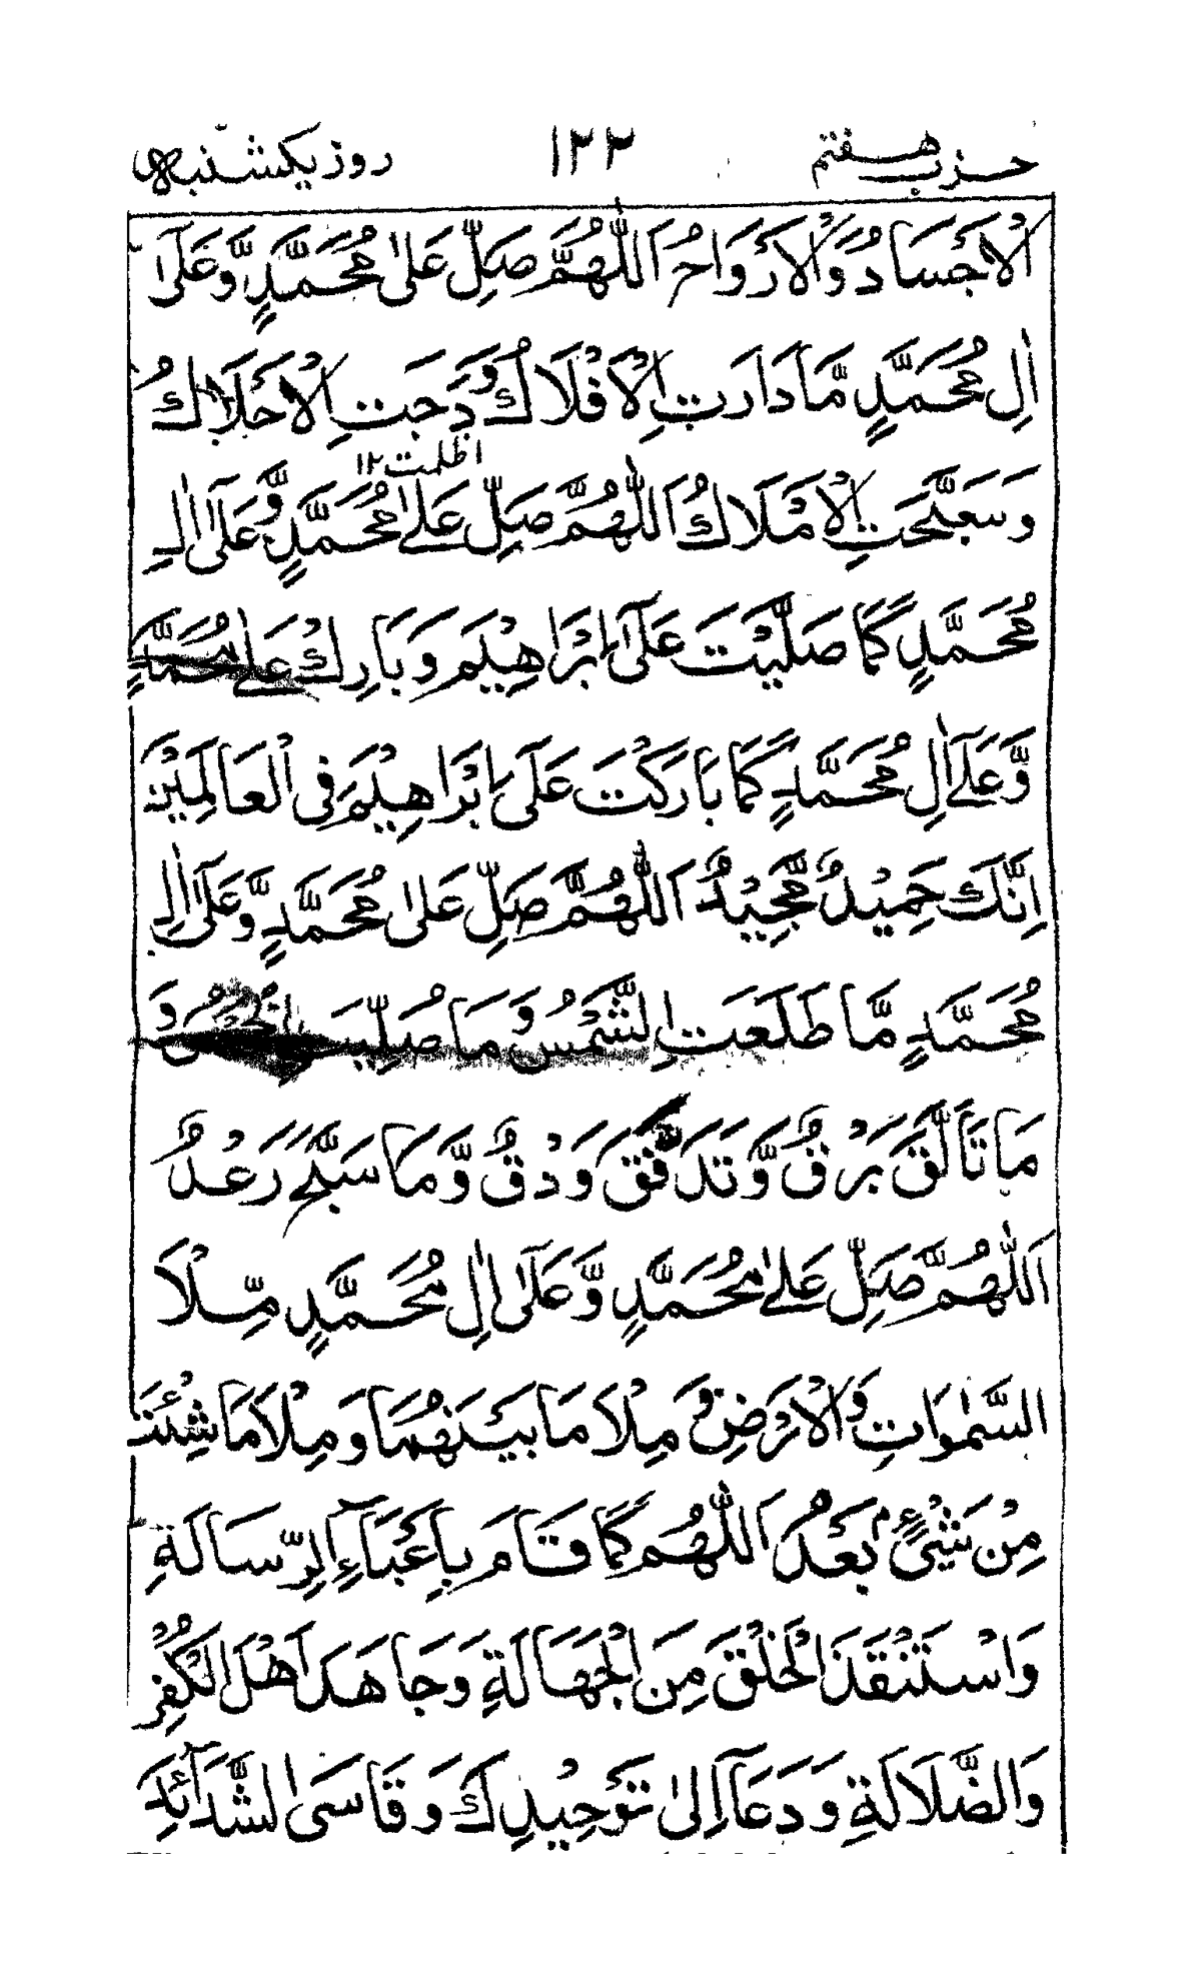 حزب هفتم ١٢٢ روز یکشنبھی
الْاَجْسَادُ وَالْاَرْوَاحُ اَللّٰهُمَّ صَلِّ عَلٰى مُحَمَّدٍ وَّعَلٰٓى
اٰلِ مُحَمَّدٍ مَّا دَارَتِ الْاَفْلَاكُ وَدَجَتِ الْاَحْلَاكُ
اظلمت ١٢
وَسَبَّحَتِ الْاَمْلَاكُ اَللّٰهُمَّ صَلِّ عَلٰى مُحَمَّدٍ وَّعَلٰٓى اٰلِ
مُحَمَّدٍ كَمَا صَلَّيْتَ عَلٰٓى اِبْرَاهِيْمَ وَبَارِكْ عَلٰى مُحَمَّدٍ
وَّعَلٰٓى اٰلِ مُحَمَّدٍ كَمَا بَارَكْتَ عَلٰٓى اِبْرَاهِيْمَ فِى الْعَالَمِيْنَ
اِنَّكَ حَمِيْدٌ مَّجِيْدٌ اَللّٰهُمَّ صَلِّ عَلٰى مُحَمَّدٍ وَّعَلٰٓى اٰلِ
مُحَمَّدٍ مَّا طَلَعَتِ الشَّمْسُ وَمَا صُلِّيَتِ الْخَمْسُ وَ
مَا تَاَلَّقَ بَرْقٌ وَّتَدَفَّقَ وَدْقٌ وَّمَا سَبَّحَ رَعْدٌ
اَللّٰهُمَّ صَلِّ عَلٰى مُحَمَّدٍ وَّعَلٰٓى اٰلِ مُحَمَّدٍ مِّلْاَ
السَّمٰوَاتِ وَالْاَرْضِ وَمِلْاَ مَا بَيْنَهُمَا وَمِلْاَ مَا شِئْتَ
مِنْ شَيْءٍ بَعْدُ اَللّٰهُمَّ كَمَا قَامَ بِاَعْبَآءِ الرِّسَالَةِ
وَاسْتَنْقَذَ الْخَلْقَ مِنَ الْجَهَالَةِ وَجَاهَدَ اَهْلَ الْكُفْرِ
وَالضَّلَالَةِ وَدَعَآ اِلٰى تَوْحِيْدِكَ وَقَاسَى الشَّدَآئِدَ